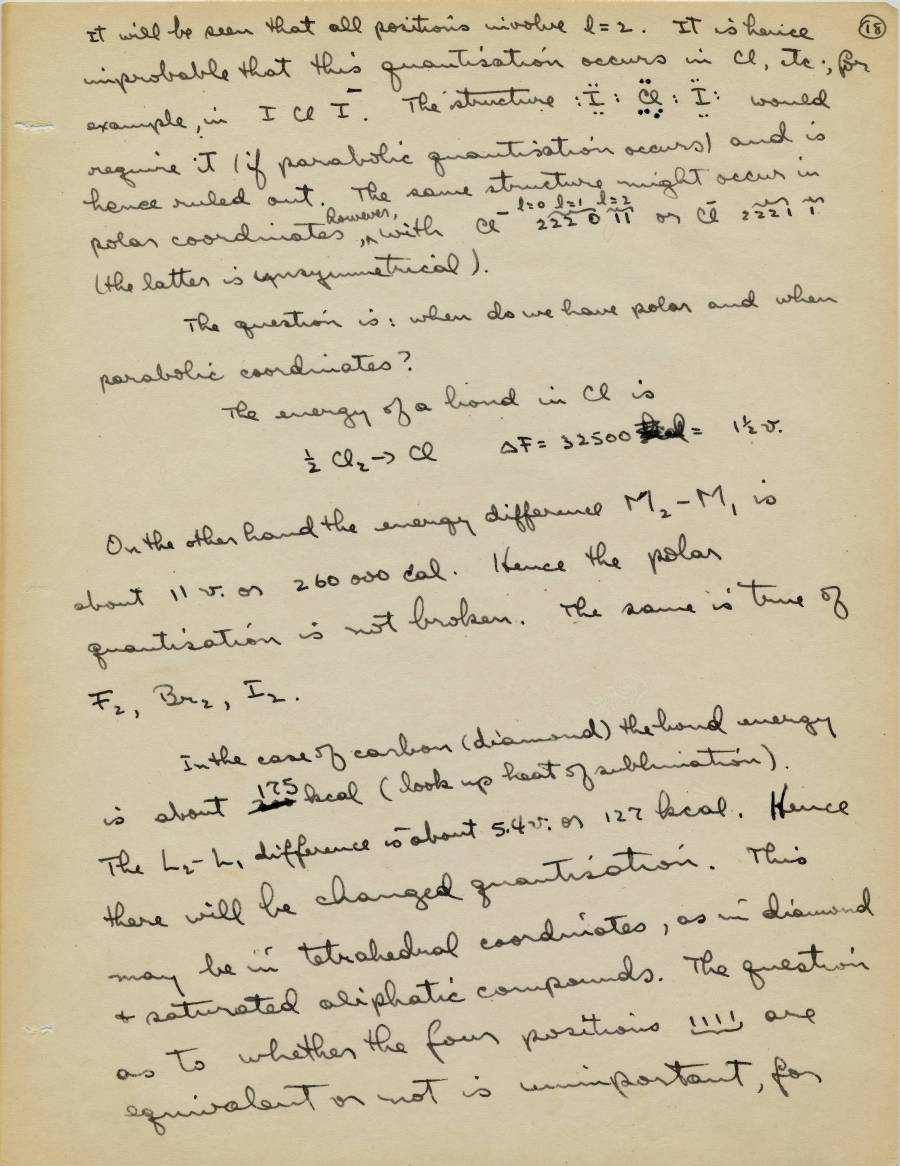 18
It will be seen that all positions involve l=2. It is hence
improbable that this quantisation occurs in Cl, etc., for
example, in I Cl I⁻. The structure :Ï: C̈l :Ï: would
require it (if parabolic quantisation occurs) and is
hence ruled out. The same structure might occur in
polar coordinates, however, with Cl⁻ l=0 l=1 l=2 222 0 11 or Cl⁻ 2221 1
(the latter is unsymmetrical).
The question is: when do we have polar and when
parabolic coordinates?
The energy of a bond in Cl is
½ Cl₂ → Cl ΔF = 32500 = 1½ v.
On the other hand the energy difference M₂-M₁ is
about 11 v. or 260 000 cal. Hence the polar
quantisation is not broken. The same is true of
F₂, Br₂, I₂.
In the case of carbon (diamond) the bond energy
is about 175 kcal (look up heat of sublimation).
The L₂-L₁ difference is about 5.4 v. or 127 kcal. Hence
there will be changed quantisation. This
may be in tetrahedral coordinates, as in diamond
+ saturated aliphatic compounds. The question
as to whether the four positions 1111 are
equivalent or not is unimportant, for